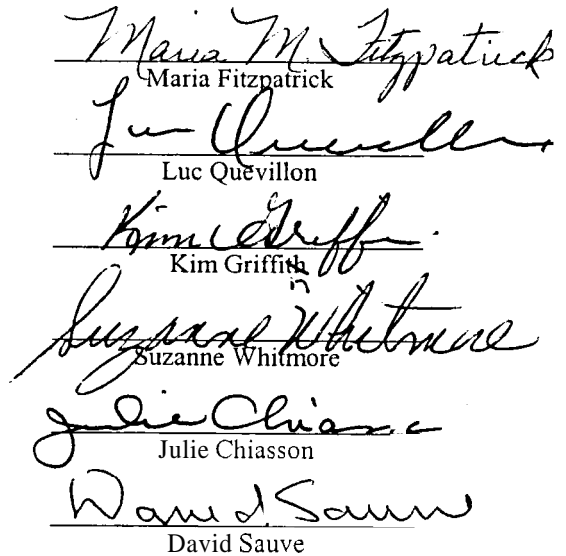 Maria M. Fitzpatrick
Maria Fitzpatrick
Luc Quevillon
Luc Quevillon
Kim Griffin
Kim Griffith
n
Suzanne Whitmore
Suzanne Whitmore
Julie Chiasson
Julie Chiasson
David Sauve
David Sauve